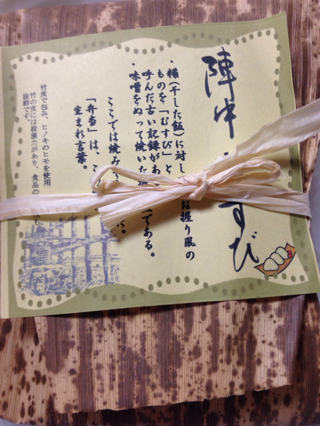 陣中 すび
・糒(干した飯)に対し お握り風の
ものを「むすび」と
呼んだ古い記録があ である。
・味噌をぬって焼いた
ここでは焼み
「弁当」は、こ
生まれ言葉。
竹皮で包み、ヒノキのヒモを使用
竹の皮には殺菌力があり、食品の
抜群です。